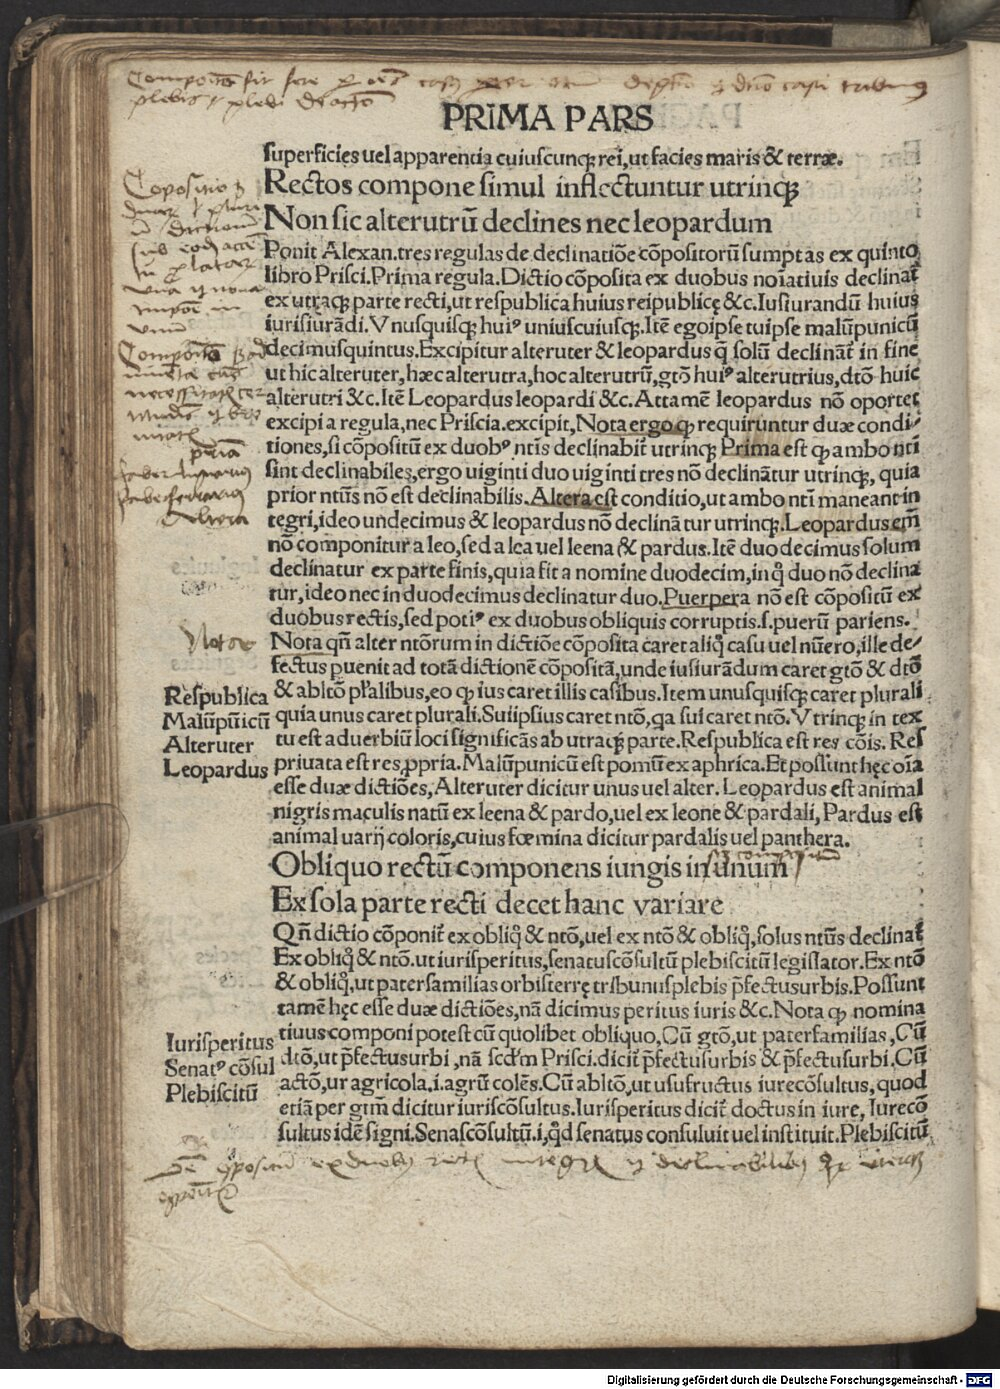 PRIMA PARS
superficies uel apparentia cuiuscunqꝫ rei, ut facies maris & terræ.
Rectos compone simul inflectuntur utrinqꝫ
Non sic alterutrũ declines nec leopardum
Ponit Alexan. tres regulas de declinatiõe cõpositorũ sumptas ex quinto
libro Prisci. Prima regula. Dictio cõposita ex duobus noĩatiuis declinat̃
ex utraqꝫ parte recti, ut respublica huius reipublicę &c. Iusiurandũ huius
iurisiurãdi. Vnusquisqꝫ huiꝰ uniuscuiusqꝫ. Itẽ egoipse tuipse malũpunicũ
decimusquintus. Excipitur alteruter & leopardus q̃ solũ declinãt̃ in fine
ut hic alteruter, hæc alterutra, hoc alterutrũ, gtõ huiꝰ alterutrius, dtõ huic
alterutri &c. Itẽ Leopardus leopardi &c. Attamẽ leopardus nõ oportet
excipi a regula, nec Priscia. excipit, Nota ergo ꝙ requiruntur duæ condi⸗
tiones, si cõpositũ ex duobꝰ ntĩs declinabit̃ utrinqꝫ Prima est ꝙ ambo ntĩ
sint declinabiles, ergo uiginti duo uiginti tres nõ declinãtur utrinqꝫ, quia
prior ntũs nõ est declinabilis. Altera est conditio, ut ambo ntĩ maneant in
tegri, ideo undecimus & leopardus nõ declinãtur utrinqꝫ. Leopardus em̃
nõ componitur a leo, sed a lea uel leena & pardus. Itẽ duodecimus solum
declinatur ex parte finis, quia fit a nomine duodecim, in q̃ duo nõ declina
tur, ideo nec in duodecimus declinatur duo. Puerpera nõ est cõpositũ ex
duobus rectis, sed potiꝰ ex duobus obliquis corruptis. s. puerũ pariens.
Nota
Nota qñ alter ntõrum in dictiõe cõposita caret aliq̃ casu uel nũero, ille de⸗
fectus ꝑuenit ad totã dictionẽ cõpositã, unde iusiurãdum caret gtõ & dtõ
Respublica
& abltõ pl̃alibus, eo ꝙ ius caret illis casibus. Item unusquisqꝫ caret plurali
Malũpũicũ
quia unus caret plurali. Suiipsius caret ntõ, qa sui caret ntõ. Vtrinqꝫ in tex
Alteruter
tu est aduerbiũ loci significãs ab utraqꝫ parte. Respublica est res cõis. Res
Leopardus
priuata est res ꝓpria. Malũpunicũ est pomũ ex aphrica. Et possunt hęc oĩa
esse duæ dictiões, Alteruter dicitur unus uel alter. Leopardus est animal
nigris maculis natũ ex leena & pardo, uel ex leone & pardali, Pardus est
animal uarij coloris, cuius fœmina dicitur pardalis uel panthera.
Obliquo rectũ componens iungis in unum
Ex sola parte recti decet hanc variare
Qñ dictio cõponit̃ ex obliq̃ & ntõ, uel ex ntõ & obliq̃, solus ntũs declinat̃
Ex obliq̃ & ntõ. ut iurisperitus, senatuscõsultũ plebiscitũ legislator. Ex ntõ
& obliq̃, ut paterfamilias orbisterrę tribunusplebis p̃fectusurbis. Possunt
tamẽ hęc esse duæ dictiões, nã dicimus peritus iuris &c. Nota ꝙ nomina
Iurisperitus
tiuus componi potest cũ quolibet obliquo, Cũ gtõ, ut paterfamilias, Cũ
Senatꝰ cõsul
dtõ, ut p̃fectusurbi, nã scd̃m Prisci. dicit̃ p̃fectusurbis & p̃fectusurbi. Cũ
Plebiscitũ
actõ, ut agricola. i. agrũ colẽs. Cũ abltõ, ut usufructus iurecõsultus, quod
etiã per gtm̃ dicitur iuriscõsultus. Iurisperitus dicit̃ doctus in iure, Iurecõ
sultus idẽ signi. Senascõsultũ. i, qd̃ senatus consuluit uel instituit. Plebiscitũ
Digitalisierung gefördert durch die Deutsche Forschungsgemeinschaft - DFG